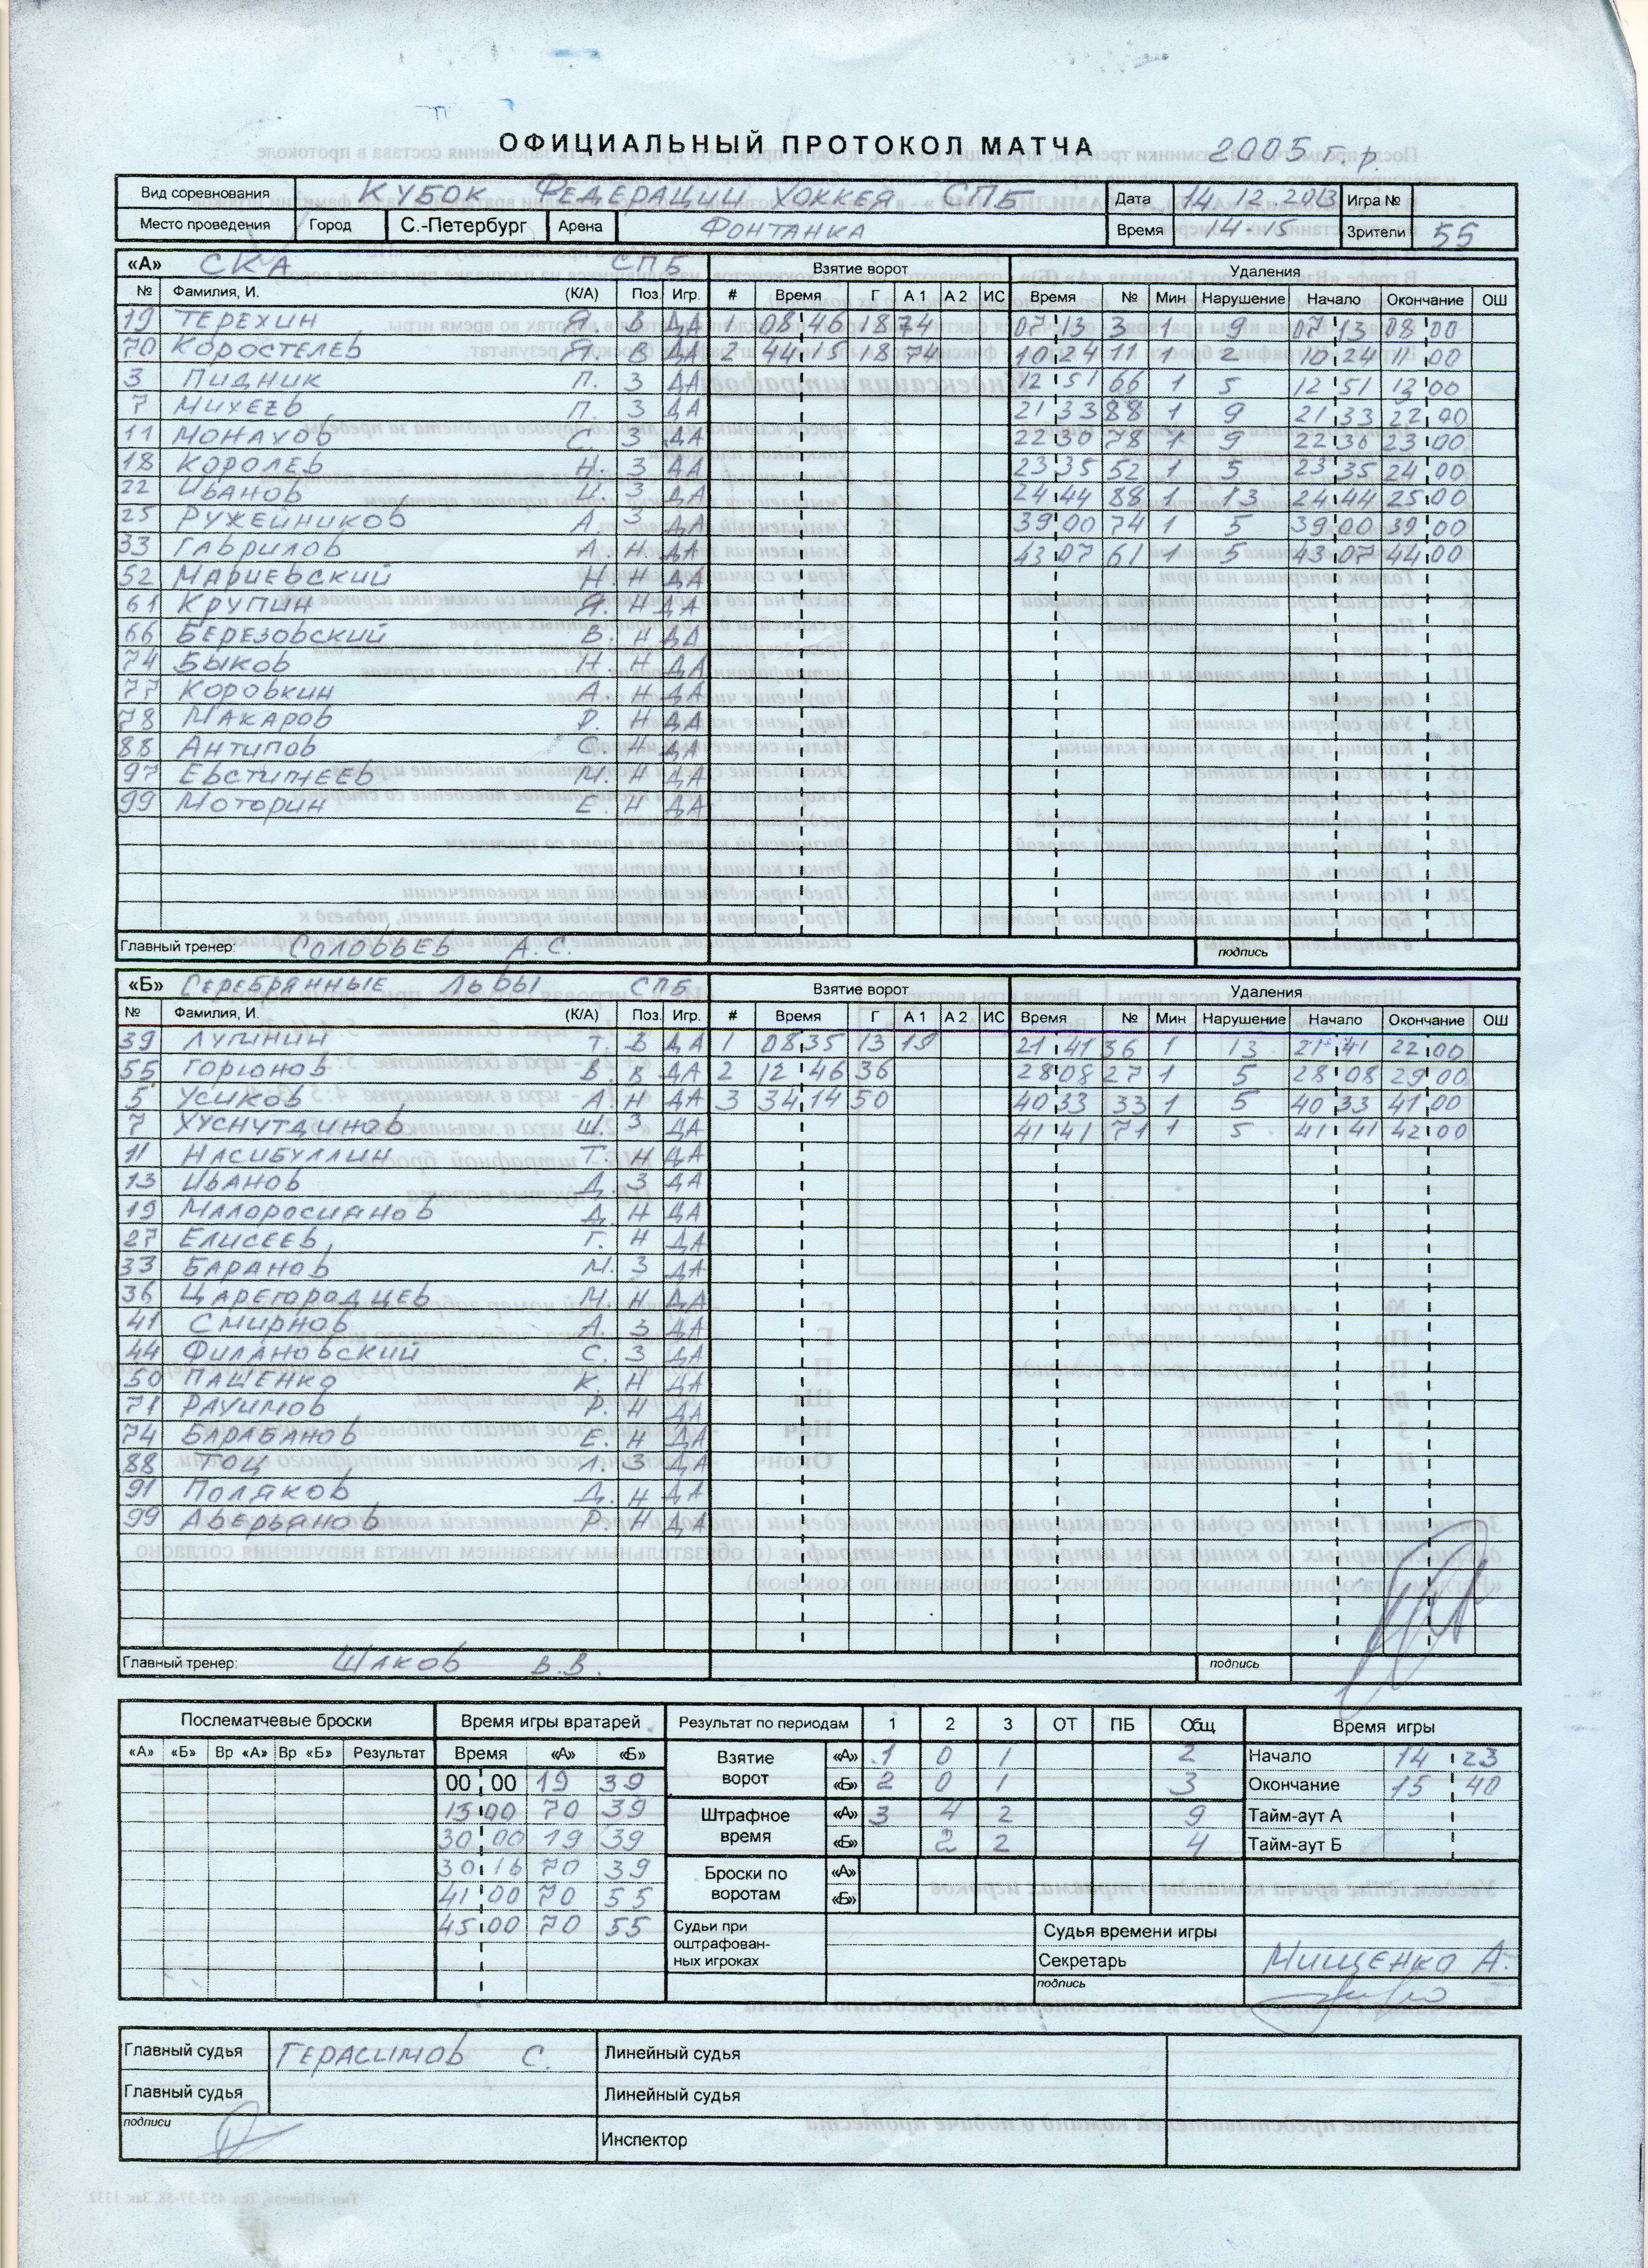 ОФИЦИАЛЬНЫЙ ПРОТОКОЛ МАТЧА 2005 г.р.
Вид соревнования КУБОК ФЕДЕРАЦИИ ХОККЕЯ СПБ Дата 14.12.2013 Игра №
Место проведения Город С.-Петербург Арена ФОНТАНКА Время 14-15 Зрители 55
«А» СКА СПБ Взятие ворот Удаления
№ Фамилия, И. (К/А) Поз. Игр. # Время Г А 1 А 2 ИС Время № Мин Нарушение Начало Окончание ОШ
19 ТЕРЕХИН Я В ДА 1 08 46 18 74 07 13 3 1 9 07 13 08 00
70 КОРОСТЕЛЕВ В ДА 2 44 15 18 74 10 24 11 1 2 10 24 11 00
3 ПИДНИК П. З ДА 12 51 66 1 5 12 51 13 00
7 МИХЕЕВ П. З ДА 21 33 88 1 9 21 33 22 00
11 МОНАХОВ С. З ДА 22 30 78 1 9 22 30 23 00
18 КОРОЛЕВ Н З ДА 23 35 52 1 5 23 35 24 00
22 ИВАНОВ И. З ДА 24 44 88 1 13 24 44 25 00
25 РУЖЕЙНИКОВ А. З ДА 39 00 74 1 5 39 00 39 00
33 ГАВРИЛОВ А. Н. ДА 43 07 61 1 5 43 07 44 00
52 МАРИЕВСКИЙ Н. Н ДА
61 КРУПИН Я. Н ДА
66 БЕРЕЗОВСКИЙ В. Н ДА
74 БЫКОВ Н Н ДА
77 КОРОВКИН А. Н ДА
78 МАКАРОВ Р. Н ДА
88 АНТИПОВ С. Н ДА
97 ЕВСТИГНЕЕВ М. Н ДА
99 МОТОРИН Е. Н ДА
Главный тренер: СОЛОВЬЕВ А.С. подпись
«Б» СЕРЕБРЯННЫЕ ЛЬВЫ СПБ Взятие ворот Удаления
№ Фамилия, И. (К/А) Поз. Игр. # Время Г А 1 А 2 ИС Время № Мин Нарушение Начало Окончание ОШ
39 ЛУПИНИН Т. В ДА 1 08 35 13 19 21 41 36 1 13 21 41 22 00
55 ГОРЮНОВ В В ДА 2 12 46 36 28 08 27 1 5 28 08 29 00
5 УСИКОВ А. Н ДА 3 34 14 50 40 33 33 1 5 40 33 41 00
7 ХУСНУТДИНОВ Ш. З ДА 41 41 71 1 5 41 41 42 00
11 НАСИБУЛЛИН Т. Н ДА
13 ИВАНОВ Д. З ДА
19 МАЛОРОСИЯНОВ Д. Н ДА
27 ЕЛИСЕЕВ Г. Н ДА
33 БАРАНОВ М. З ДА
36 ЦАРЕГОРОДЦЕВ М. Н ДА
41 СМИРНОВ А. З ДА
44 ФИЛАНОВСКИЙ С. З ДА
50 ПАЩЕНКО К. Н ДА
71 РАУИМОВ Р. Н ДА
74 БАРАБАНОВ Е. Н ДА
88 ТОЦ Л. З ДА
91 ПОЛЯКОВ Д. Н ДА
99 АВЕРЬЯНОВ Р. Н ДА
Главный тренер: ШАКОВ В.В. подпись
Послематчевые броски Время игры вратарей Результат по периодам 1 2 3 ОТ ПБ Общ Время игры
«А» «Б» Вр «А» Вр «Б» Результат Время «А» «Б» Взятие ворот «А» 1 0 1 2 Начало 14 23
00 00 19 39 «Б» 2 0 1 3 Окончание 15 40
15 00 70 39 Штрафное время «А» 3 4 2 9 Тайм-аут А
30 00 19 39 «Б» 2 2 4 Тайм-аут Б
30 16 70 39 Броски по воротам «А»
41 00 70 55 «Б»
45 00 70 55 Судьи при оштрафован-ных игроках Судья времени игры
Секретарь МИЩЕНКО А.
подпись
Главный судья ГЕРАСИМОВ С. Линейный судья
Главный судья Линейный судья
подписи Инспектор